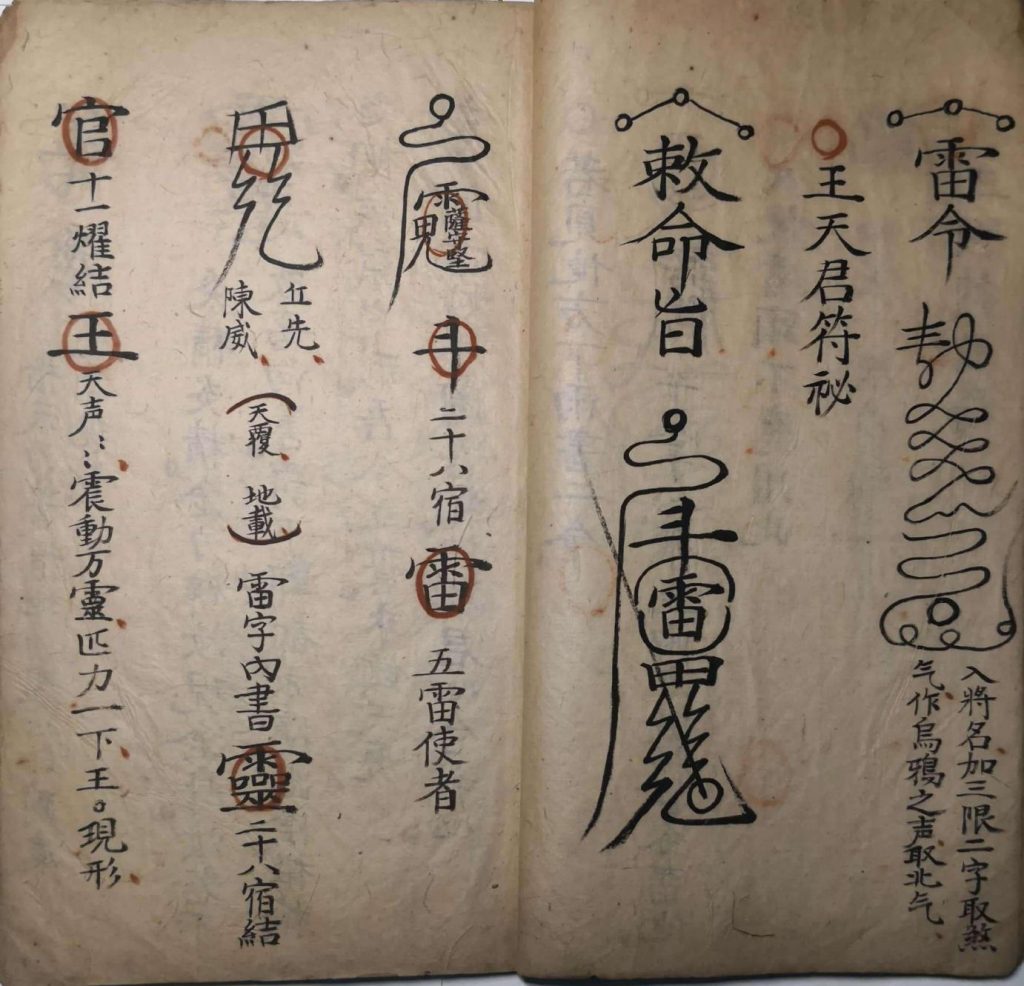 雷令
入將名加三限二字取煞
气作烏鴉之声取北气
王天君符祕
敕命旨
雷
薩守堅
二十八宿
雷
五雷使者
先
陳威
天覆
地載
雷字內書
靈
二十八宿結
官
十一耀結
王
天声
震動万靈匹力一下王
現形